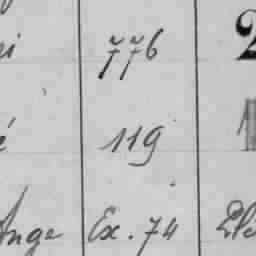 i 776 2
é 119
Ange Ex. 74